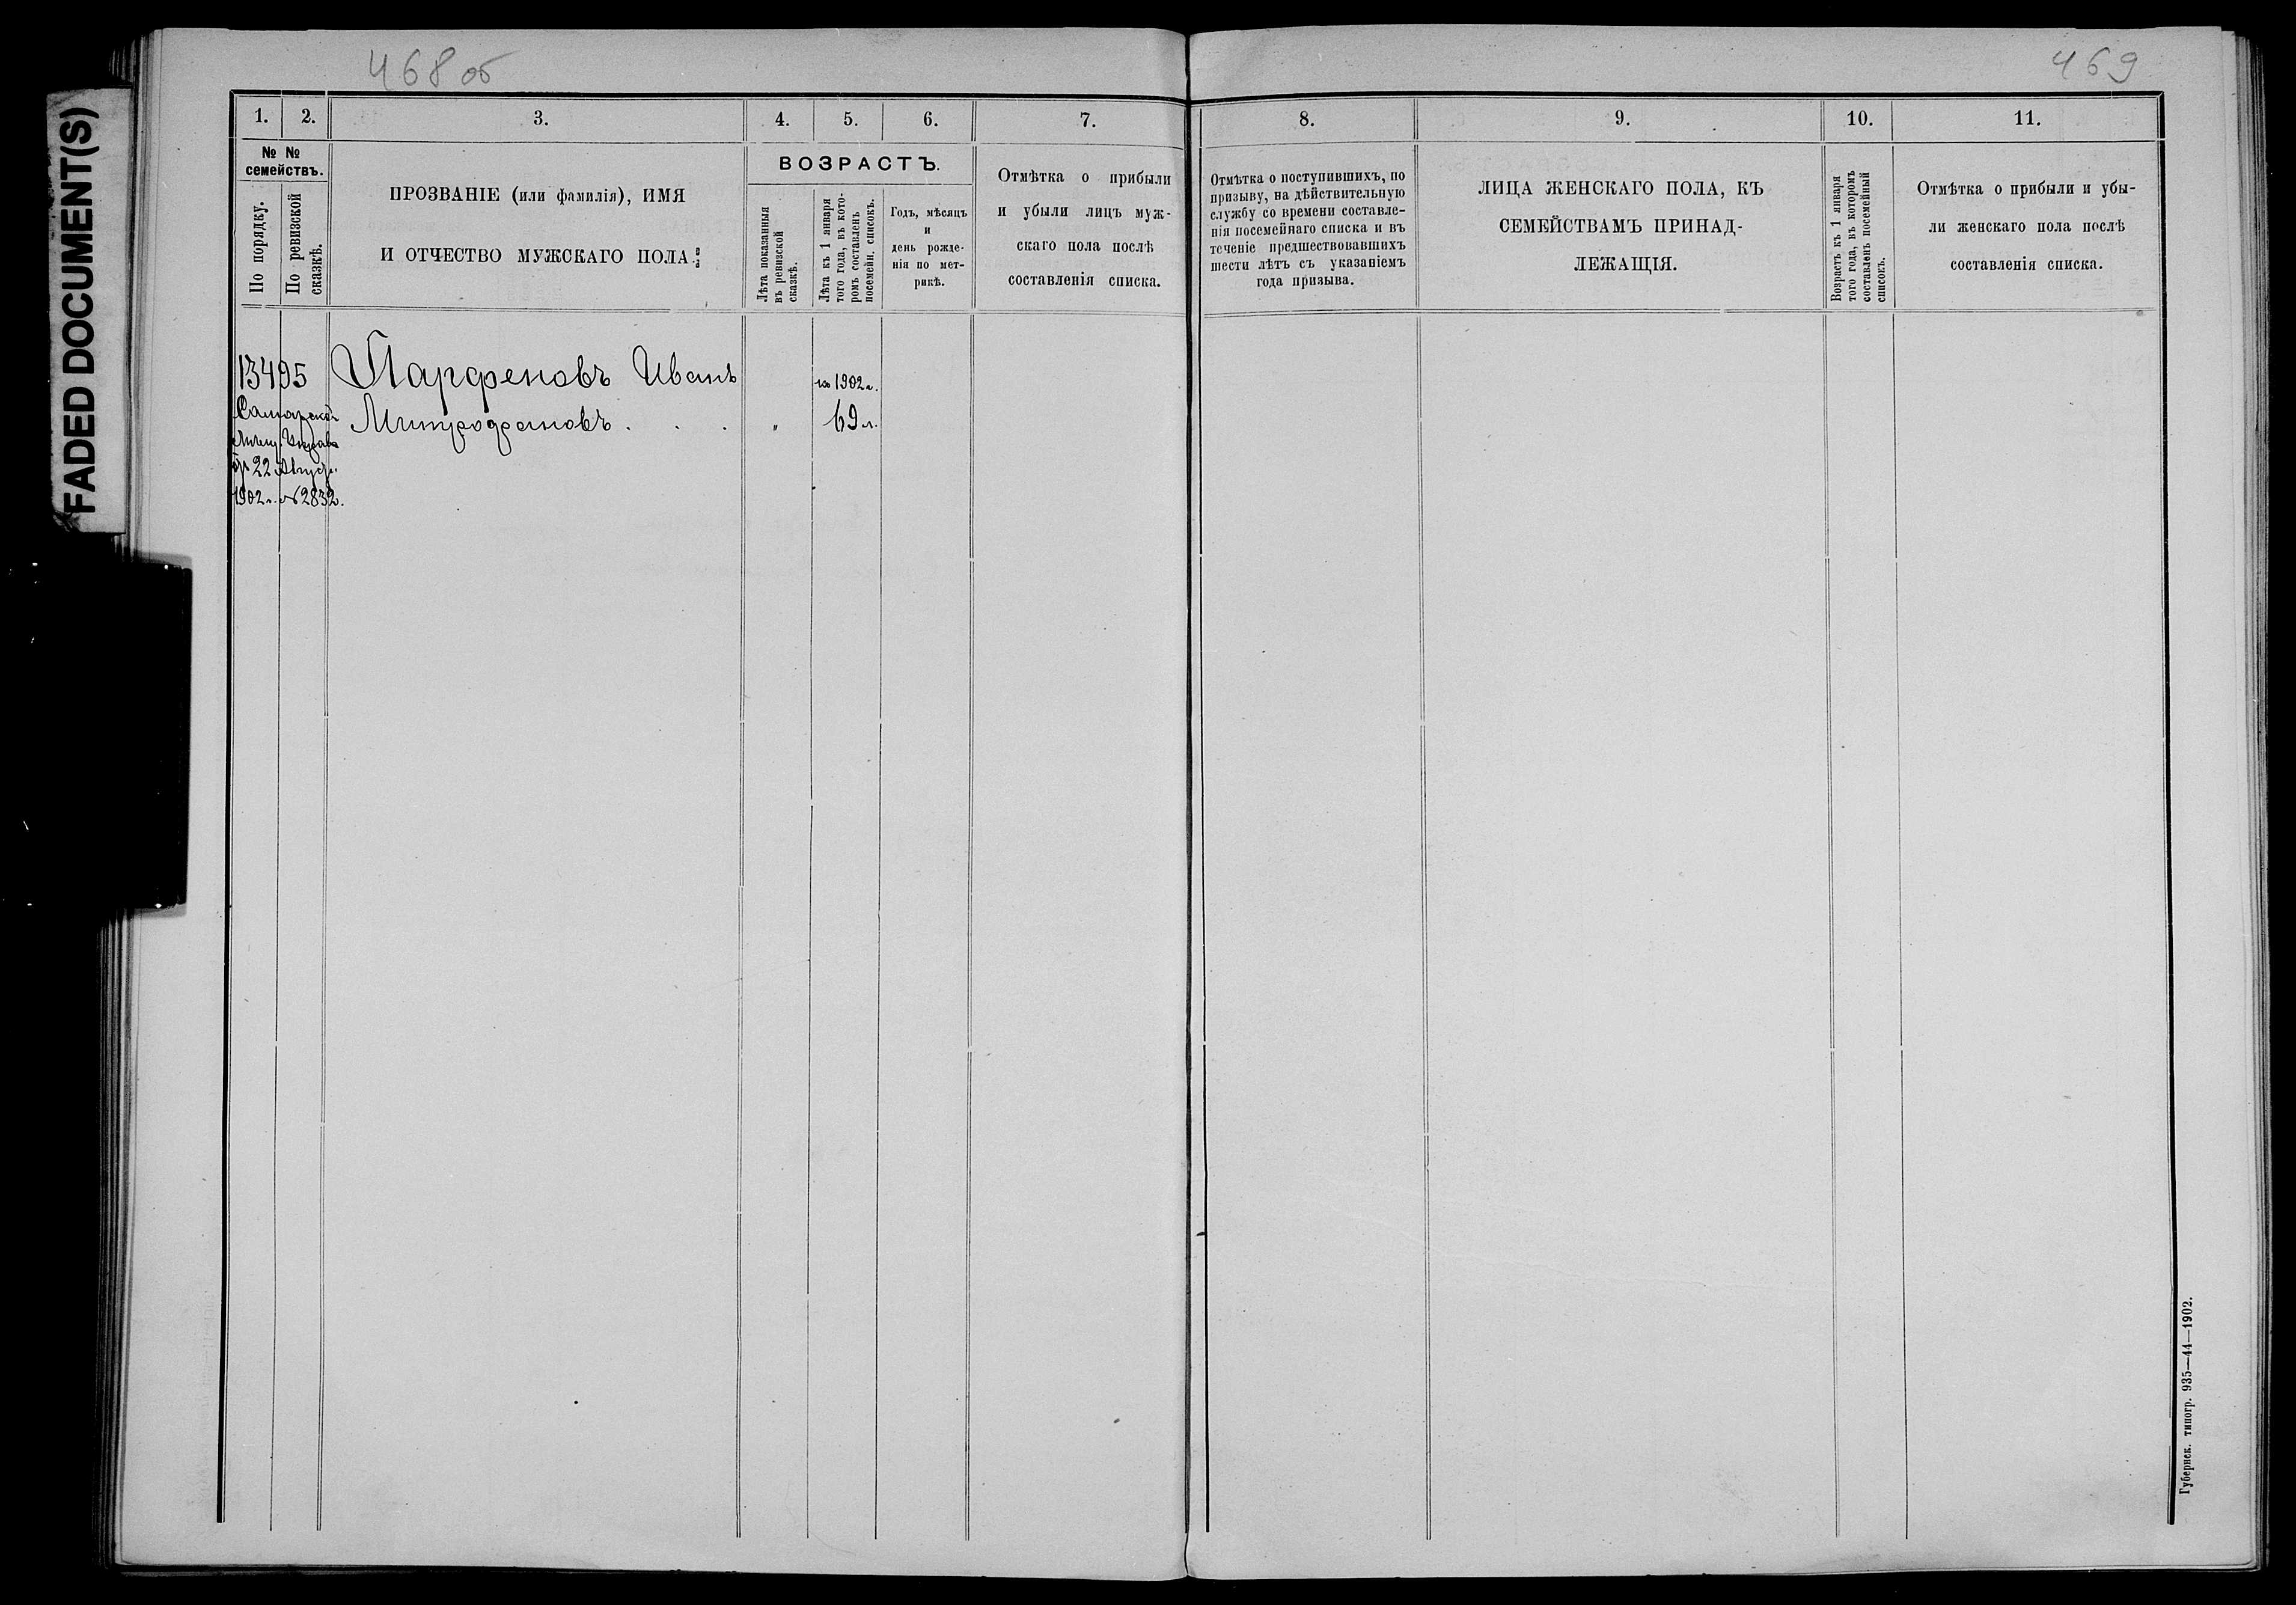 FADED DOCUMENT(S)
468 об
469
1.
2.
3.
4.
5.
6.
7.
8.
9.
10.
11.
№ №
семействъ.
По порядку.
По ревизской
сказкѣ.
ПРОЗВАНІЕ (или фамилія), ИМЯ
И ОТЧЕСТВО МУЖСКАГО ПОЛА.
ВОЗРАСТЪ.
Лѣта показанныя
въ ревизской
сказкѣ.
Лѣта къ 1 января
того года, въ кото-
ромъ составленъ
посемейн. списокъ.
Годъ, мѣсяцъ
и
день рожде-
нія по мет-
рикѣ.
Отмѣтка о прибыли
и убыли лицъ муж-
скаго пола послѣ
составленія списка.
Отмѣтка о поступившихъ, по
призыву, на дѣйствительную
службу со времени составле-
нія посемейнаго списка и въ
теченіе предшествовавшихъ
шести лѣтъ съ указаніемъ
года призыва.
ЛИЦА ЖЕНСКАГО ПОЛА, КЪ
СЕМЕЙСТВАМЪ ПРИНАД-
ЛЕЖАЩІЯ.
Возрастъ къ 1 января
того года, въ которомъ
составленъ посемейный
списокъ.
Отмѣтка о прибыли и убы-
ли женскаго пола послѣ
составленія списка.
13495
Парфеновъ Иванъ
Митрофановъ . . .
"
на 1902 г.
69 л.
Самарской
Управа
22 Август.
1902 г. № 2832.
Губернск. типогр. 935—44—1902.